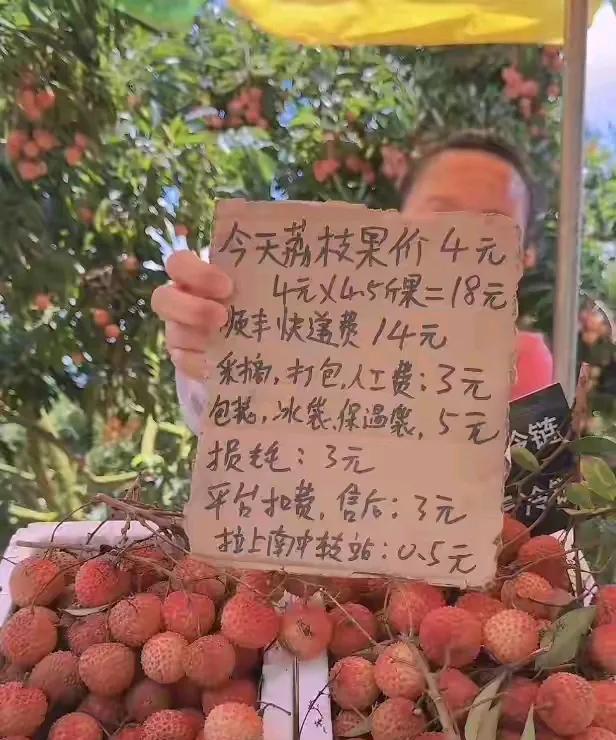 今天荔枝果价4元
4元X4.5斤果=18元
顺丰快递费14元
采摘,打包,人工费:3元
包装,冰袋,保温袋,5元
损耗:3元
平台扣费,售后:3元
拉上南冲转站:0.5元
冷链
冷